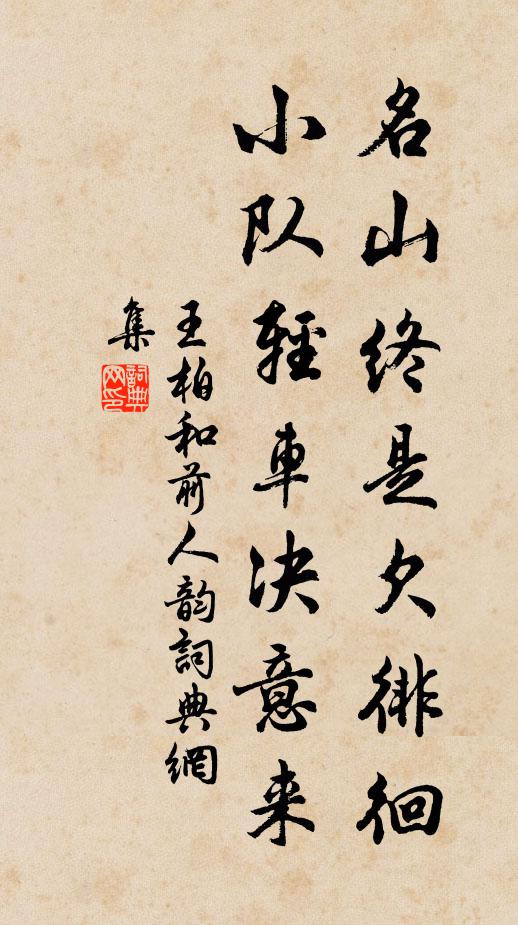 名山终是欠徘徊
小队轻車决意来
王柏和前人韵詞典網
集
詞典
网印